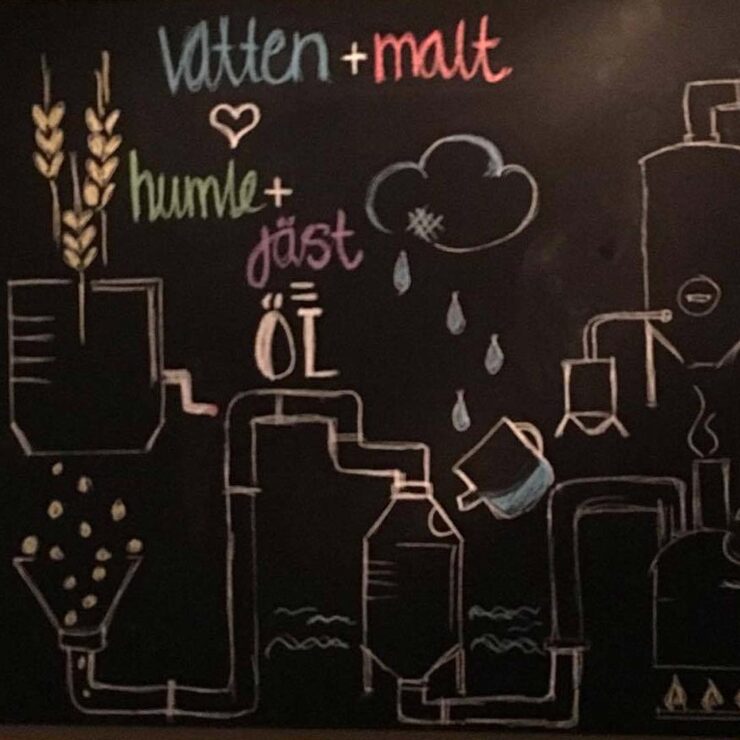 vatten + malt
humle +
jäst
=
ÖL